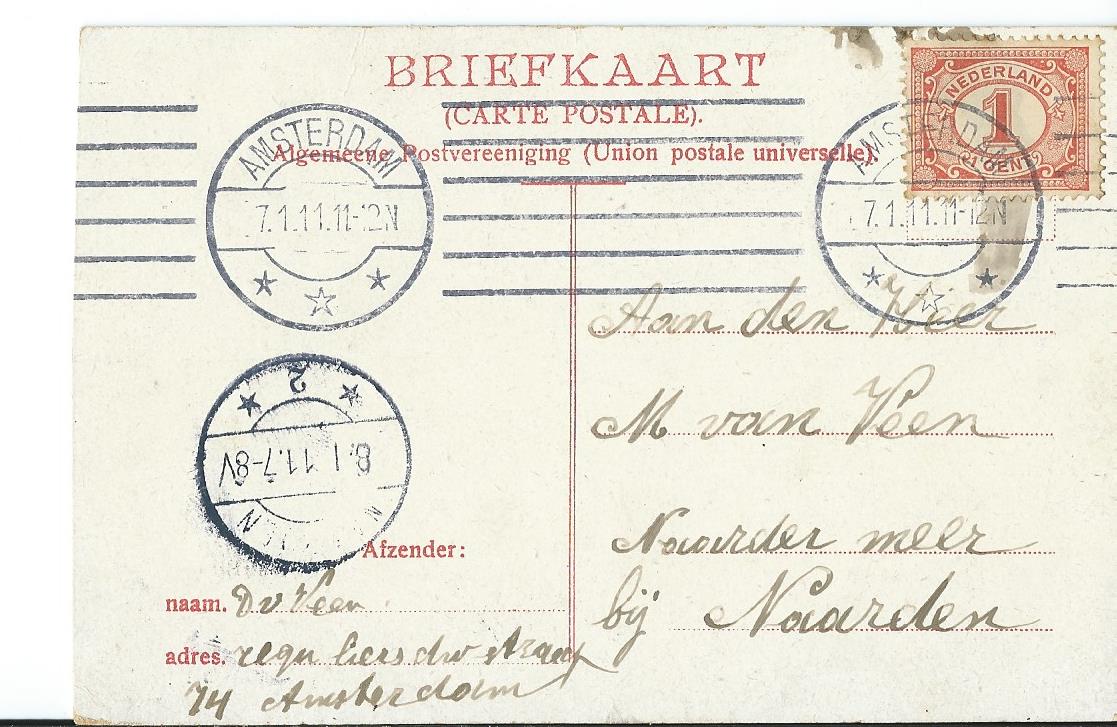 BRIEFKAART
(CARTE POSTALE).
Algemeene Postvereeniging (Union postale universelle).
NEDERLAND
1
CENT
AMSTERDAM
7.1.11.11-12N
AMSTERDAM
7.1.11.11-12N
2
8.1.11.7-8V
Aan den Heer
M van Veen
Naarder meer
bij Naarden
Afzender:
naam. D v Veen
adres. reguliersdw straat
74 Amsterdam